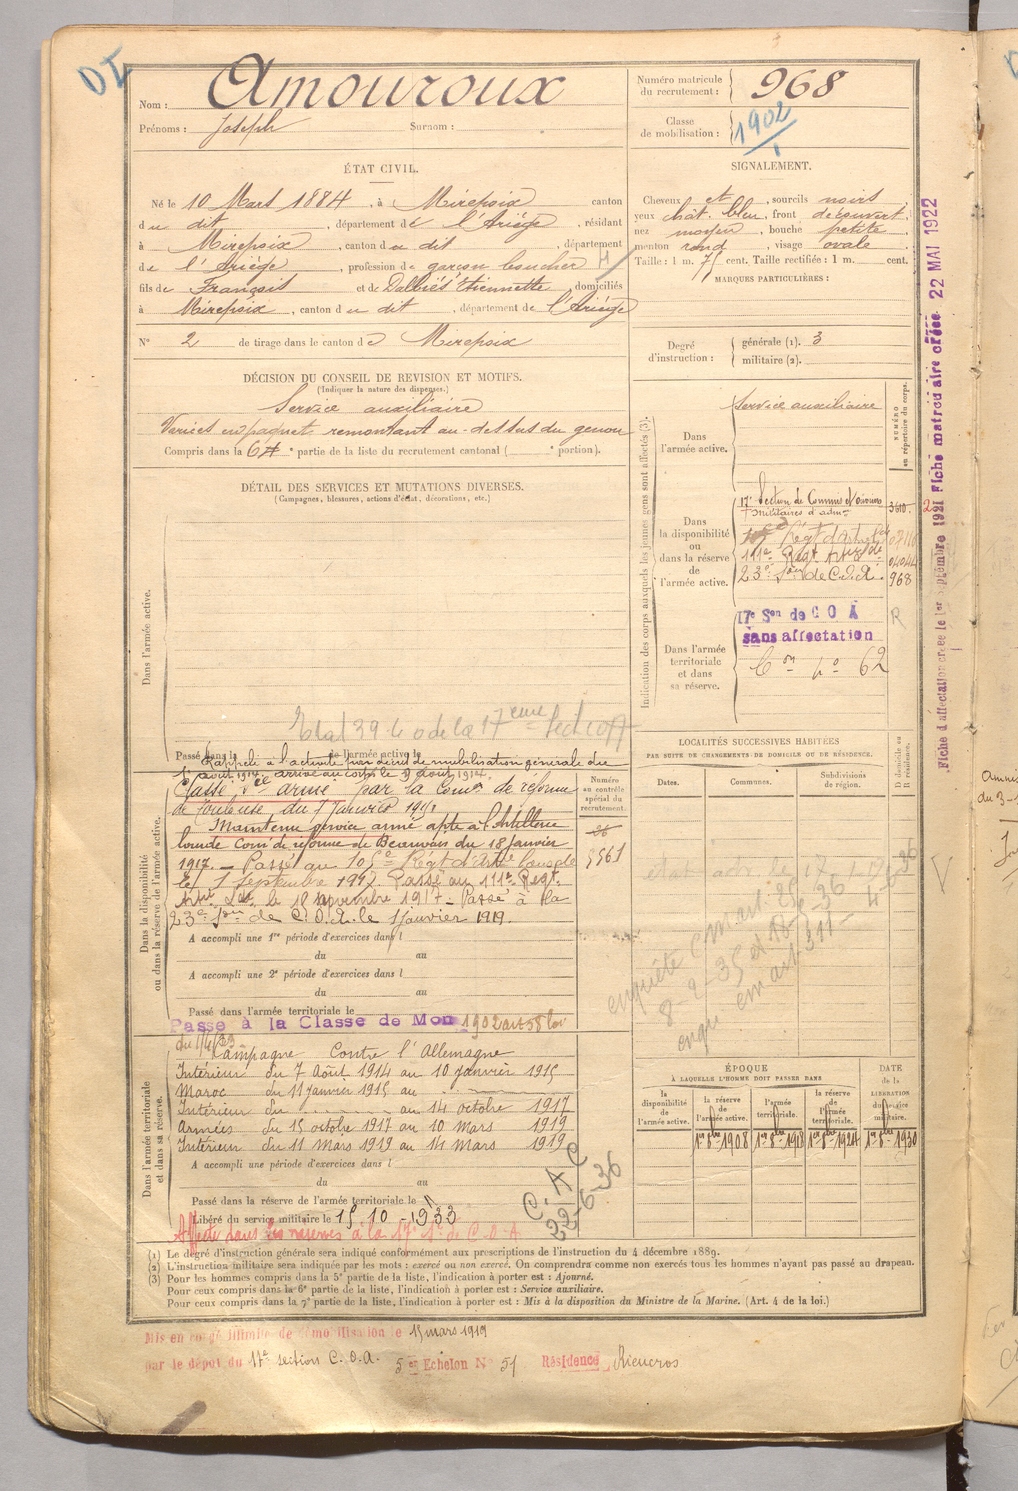 DI
Nom : Amouroux
Prénoms : Joseph Surnom :
Numéro matricule du recrutement : 968
Classe de mobilisation : 1902
ÉTAT CIVIL.
Né le 10 Mars 1884, à Mirepoix canton
du dit, département de l'Ariège, résidant
à Mirepoix, canton du dit, département
de l'Ariège, profession de garçon boucher
fils de François et de Dalliès Etiennette domiciliés
à Mirepoix, canton du dit, département de l'Ariège
N° 2 de tirage dans le canton de Mirepoix
SIGNALEMENT.
Cheveux et, sourcils noirs
yeux chât. bleu, front découvert
nez moyen, bouche petite
menton rond, visage ovale
Taille : 1 m. 75 cent. Taille rectifiée : 1 m. cent.
MARQUES PARTICULIÈRES :
Degré d'instruction : générale (1). 3
militaire (2).
DÉCISION DU CONSEIL DE REVISION ET MOTIFS.
(Indiquer la nature des dispenses.)
Service auxiliaire
Varices en paquet remontant au-dessus du genou
Compris dans la 6e partie de la liste du recrutement cantonal ( e portion).
DÉTAIL DES SERVICES ET MUTATIONS DIVERSES.
(Campagnes, blessures, actions d'éclat, décorations, etc.)
Dans l'armée active.
Passé dans la de l'armée active le
Rappelé à l'activité décret de mobilisation générale du
1er août 1914. arrivé au corps le 7 août 1914.
Classé sce armé par la Comon de réforme
de Toulouse du 7 Janvier 1917
Maintenu service armé apte à l'Artillerie
lourde Comon de réforme de Beauvais du 18 janvier
1917. — Passé au 105e Régt d'Artie lourde
le 1 septembre 1917. Passé au 111e Régt
Artie Lde le 18 novembre 1917 — Passé à la
23e Son de C.O.A. le 1 Janvier 1919.
Dans la disponibilité ou dans la réserve de l'armée active.
Numéro au contrôle spécial du recrutement.
3561
A accompli une 1re période d'exercices dans l
du au
A accompli une 2e période d'exercices dans l
du au
Passé dans l'armée territoriale le
Passé à la Classe de Mon 1902 art 58 loi
du 1/4/23
Campagne Contre l'Allemagne
Intérieur du 7 Août 1914 au 10 janvier 1915
Maroc du 11 janvier 1915 au
Intérieur du au 14 octobre 1917
Armées du 15 octobre 1917 au 10 Mars 1919
Intérieur du 11 Mars 1919 au 14 Mars 1919
Dans l'armée territoriale et dans sa réserve.
A accompli une période d'exercices dans l
du au
Passé dans la réserve de l'armée territoriale le
Libéré du service militaire le 15-10-1933
Affecté dans les réserves à la 17e Son de C.O.A
C.A.C
22-6-36
Indication des corps auxquels les jeunes gens sont affectés (3).
NUMÉRO au répertoire du corps.
Dans l'armée active.
Service auxiliaire
Dans la disponibilité ou dans la réserve de l'armée active.
17e Section de Commis et Ouvriers
militaires d'admon
3610
111e Régt Artie Lde
23e Son de C.O.A. 968
Dans l'armée territoriale et dans sa réserve.
17e Son de C O A
sans affectation
R
Con no 62
LOCALITÉS SUCCESSIVES HABITÉES
PAR SUITE DE CHANGEMENTS DE DOMICILE OU DE RÉSIDENCE.
D domicile ou R résidence.
Dates. Communes. Subdivisions de région.
ÉPOQUE
À LAQUELLE L'HOMME DOIT PASSER DANS
la disponibilité de l'armée active.
la réserve de l'armée active.
l'armée territoriale.
la réserve de l'armée territoriale.
DATE de la LIBÉRATION du service militaire.
1er 8bre 1908 1er 8bre 1918 1er 8bre 1924 1er 8bre 1930
Fiche d'affectation créée le 1er septembre 1921 Fiche matriculaire créée 22 MAI 1922
(1) Le degré d'instruction générale sera indiqué conformément aux prescriptions de l'instruction du 4 décembre 1889.
(2) L'instruction militaire sera indiquée par les mots : exercé ou non exercé. On comprendra comme non exercés tous les hommes n'ayant pas passé au drapeau.
(3) Pour les hommes compris dans la 5e partie de la liste, l'indication à porter est : Ajourné.
Pour ceux compris dans la 6e partie de la liste, l'indication à porter est : Service auxiliaire.
Pour ceux compris dans la 7e partie de la liste, l'indication à porter est : Mis à la disposition du Ministre de la Marine. (Art. 4 de la loi.)
Mis en congé illimité de démobilisation le 15 mars 1919
par le dépôt du 17e section C.O.A. 5er Echelon N° 51 Résidence Rieucros